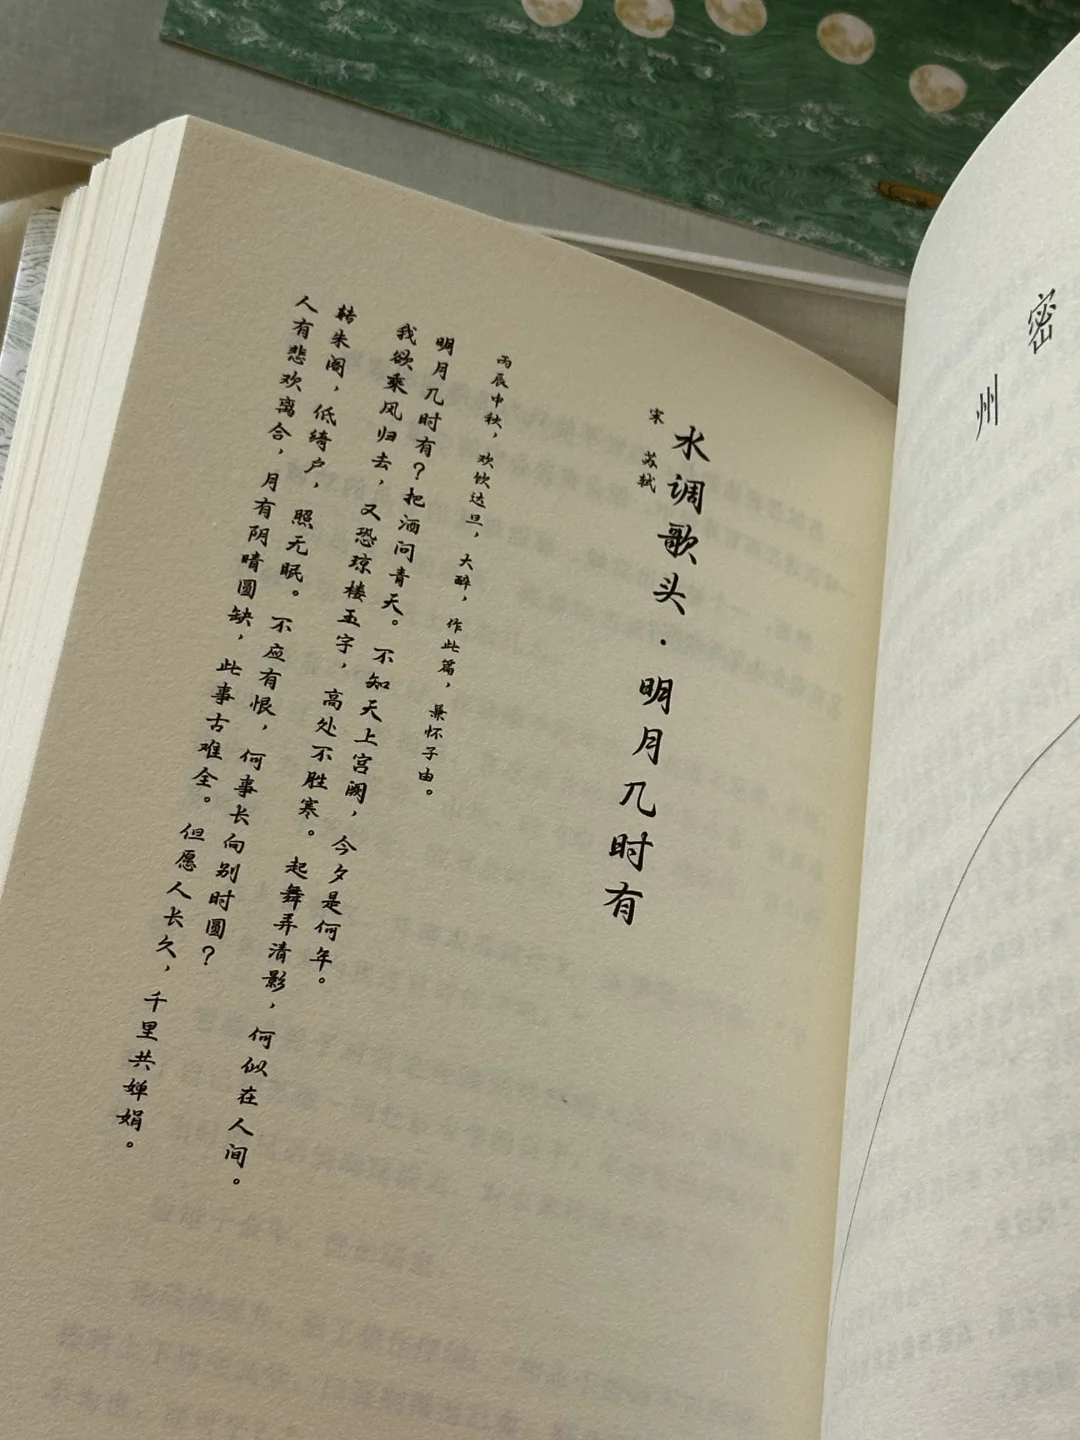 密州
水调歌头·明月几时有
宋 苏轼
丙辰中秋，欢饮达旦，大醉，作此篇，兼怀子由。
明月几时有？把酒问青天。不知天上宫阙，今夕是何年。
我欲乘风归去，又恐琼楼玉宇，高处不胜寒。起舞弄清影，何似在人间。
转朱阁，低绮户，照无眠。不应有恨，何事长向别时圆？
人有悲欢离合，月有阴晴圆缺，此事古难全。但愿人长久，千里共婵娟。